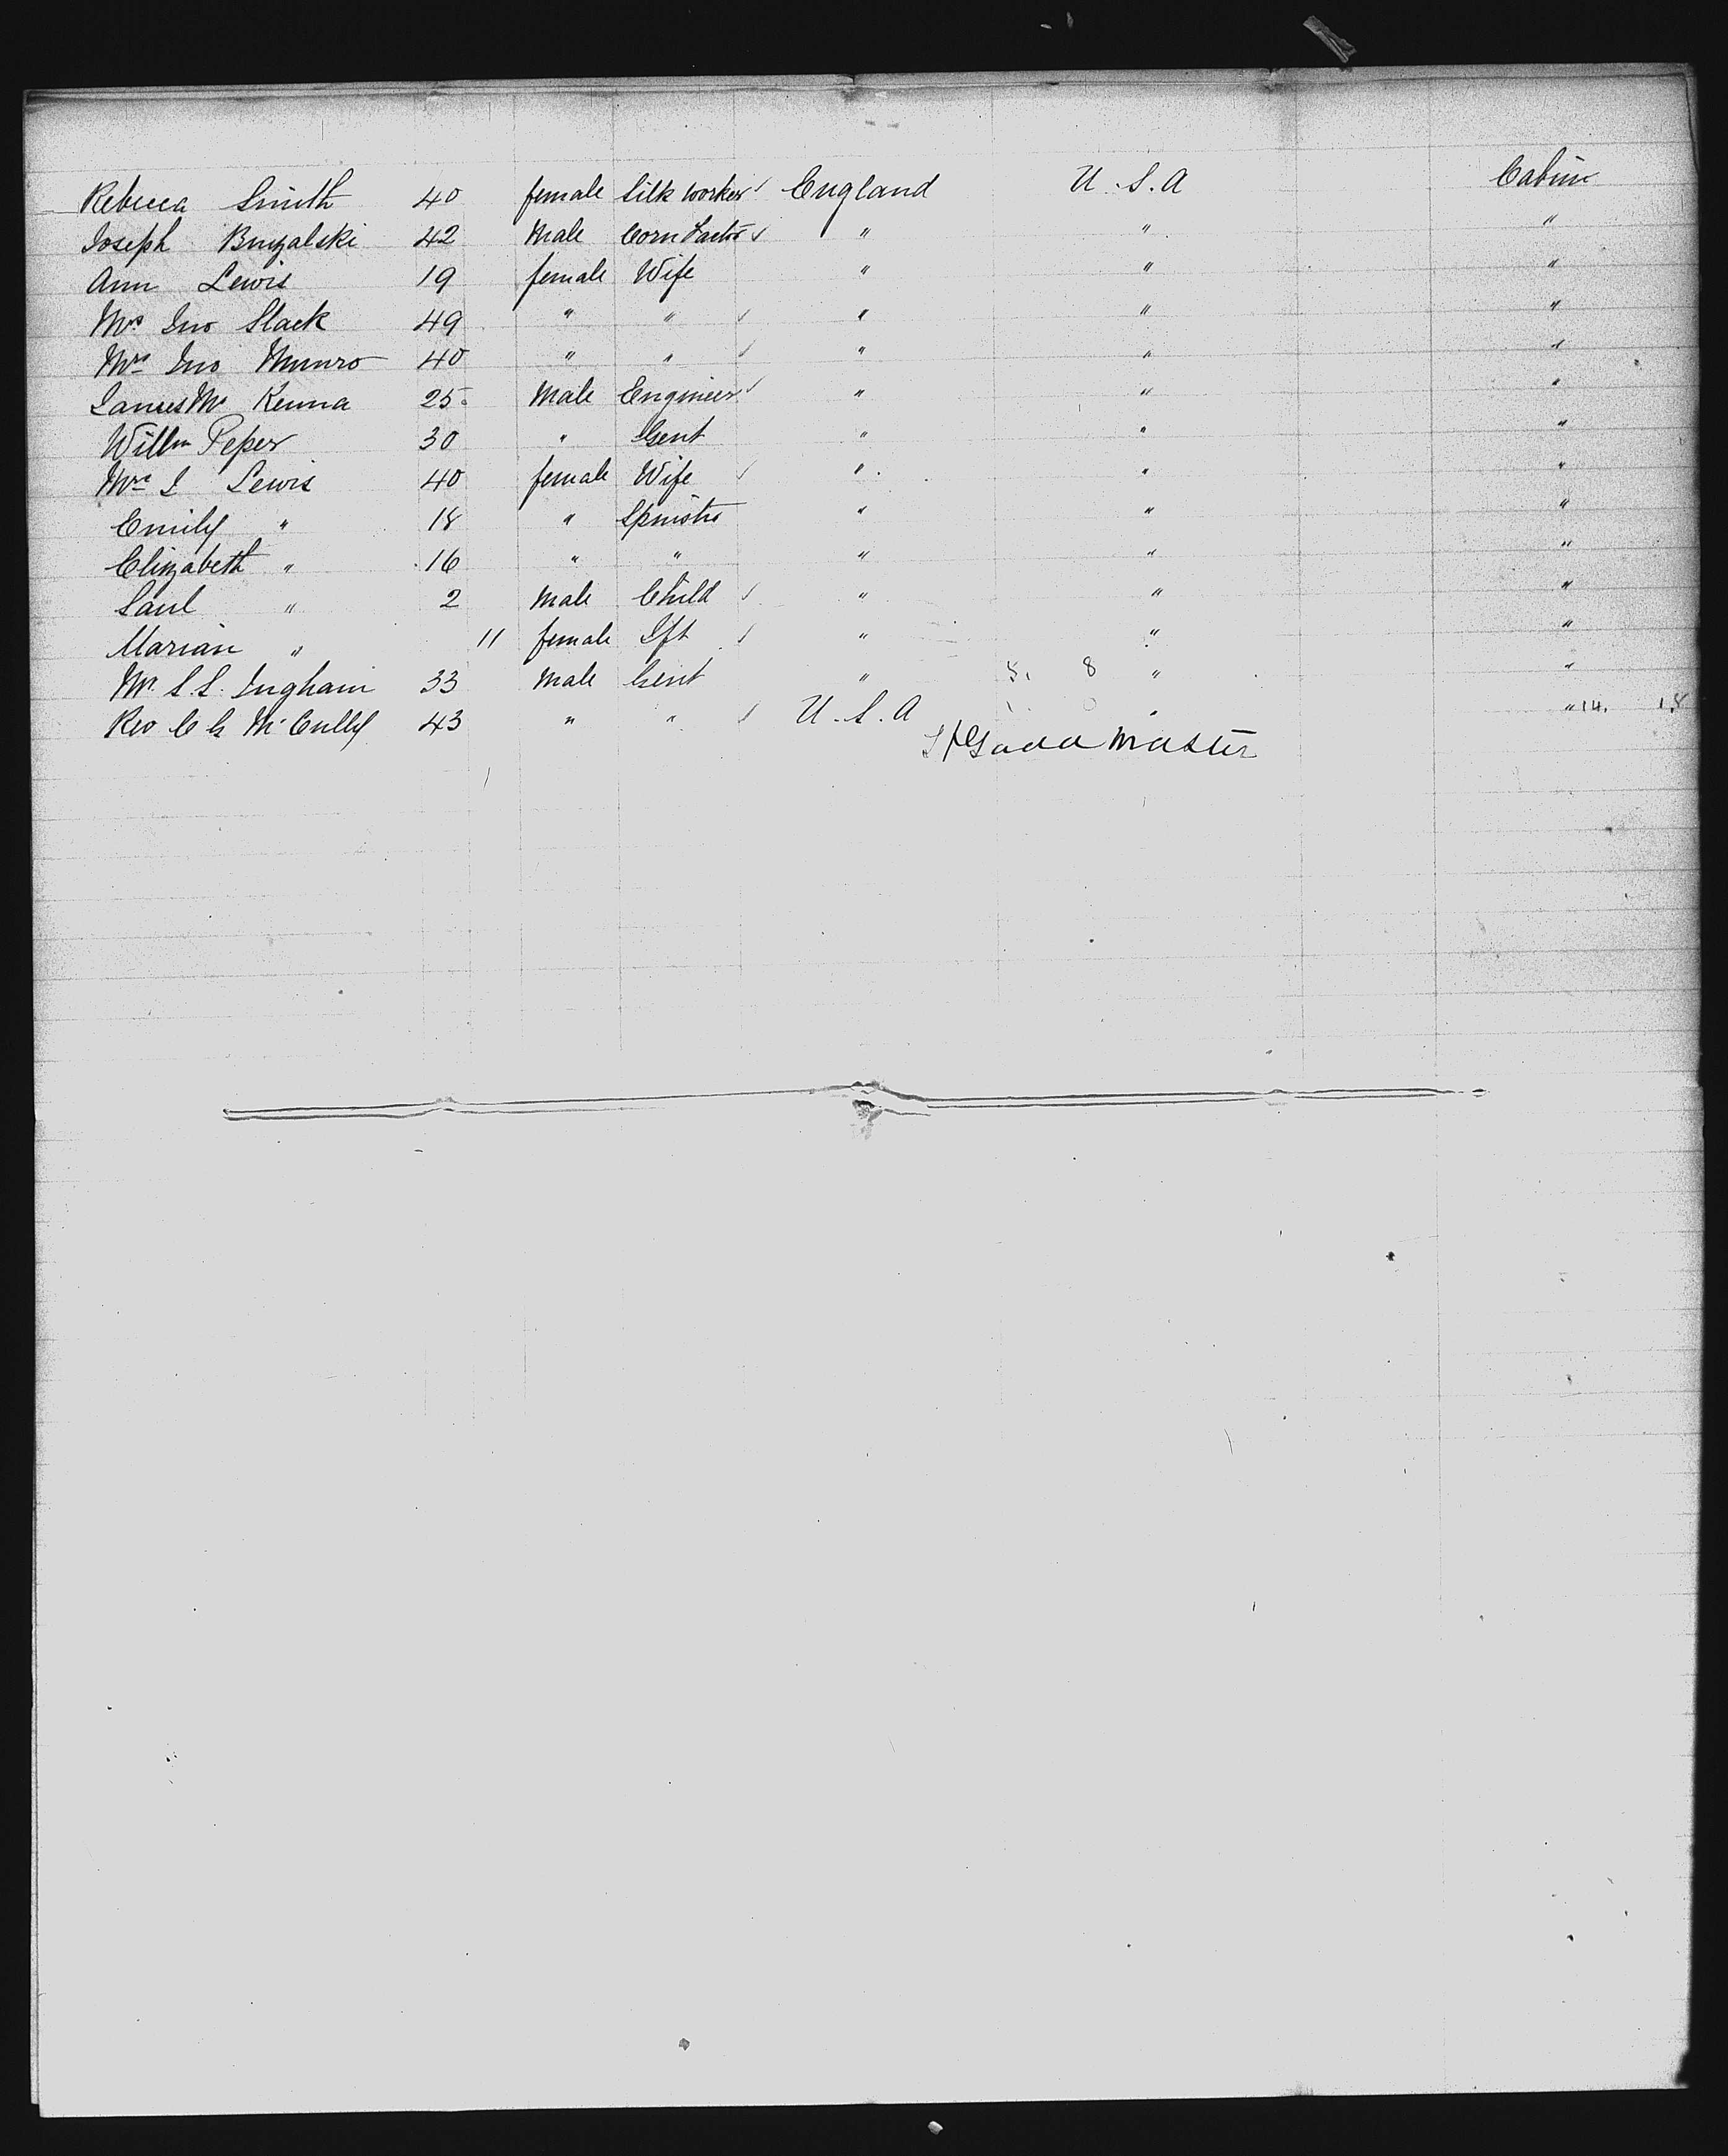 Rebecca Smith 40 female Silk worker England U.S.A Cabin
Joseph Buyalski 42 Male Corn Factor " " "
Ann Lewis 19 female Wife " " "
Mrs Jno Slack 49 " " " " "
Mrs Jno Munro 40 " " " " "
James Mc Kenna 25 Male Engineer " " "
Willm Peper 30 " Gent " " "
Mrs I Lewis 40 female Wife " " "
Emily " 18 " Spinster " " "
Elizabeth " 16 " " " " "
Saul " 2 Male Child " " "
Marian " 11 female Ift " " "
Mr. S.S. Ingham 33 Male Gent " 8 " "
Rev C G Mc Cully 43 " " U.S.A " " 14. 18
Gadd Master